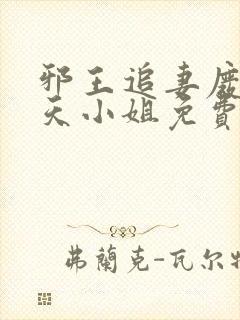 邪王追妻廢
天小姐免費
弗蘭克-瓦尔特